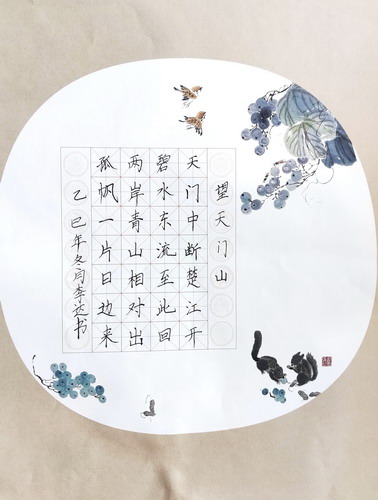 望天门山
天门中断楚江开
碧水东流至此回
两岸青山相对出
孤帆一片日边来
乙巳年冬月李达书